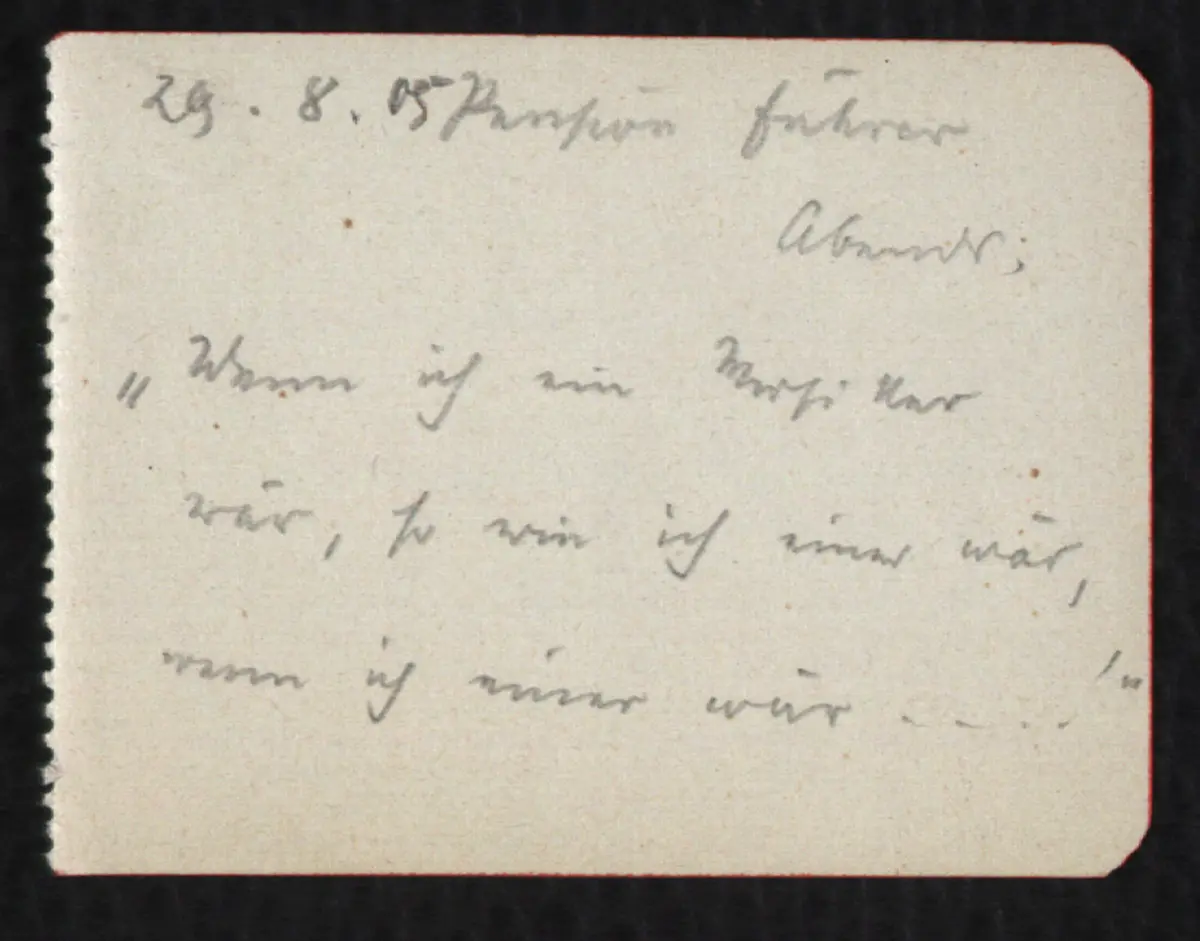 29. 8. 05 Pension Führer
Abends:
„Wenn ich ein Musiker
wär, so wie ich einer wär,
wenn ich einer wär ....!"